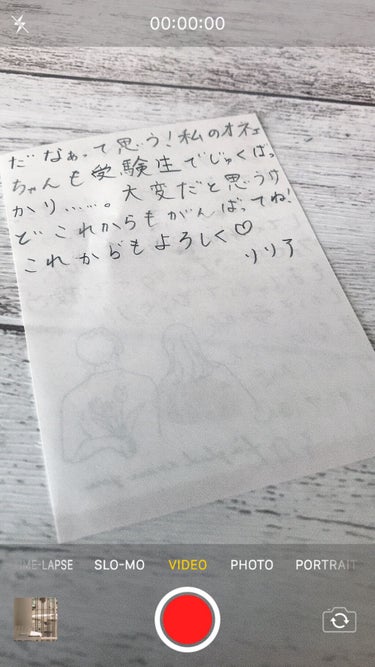 00:00:00
だなぁって思う！私のオネェ
ちゃんも受験生でじゅくばっ
かり……。大変だと思うけ
どこれからもがんばってね！
これからもよろしく♡
リリア
SLO-MO VIDEO PHOTO PORTRAIT